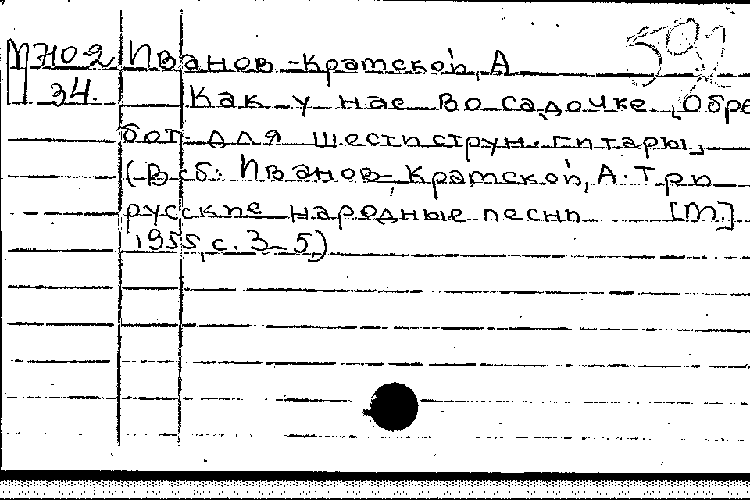 М702 Иванов-Крамской, А
34. Как у нас во садочке, Обра
бот. для шестиструн. гитары,
(В сб: Иванов-Крамской, А. Три
русские народные песни [М.]
1955, с. 3-5)
592